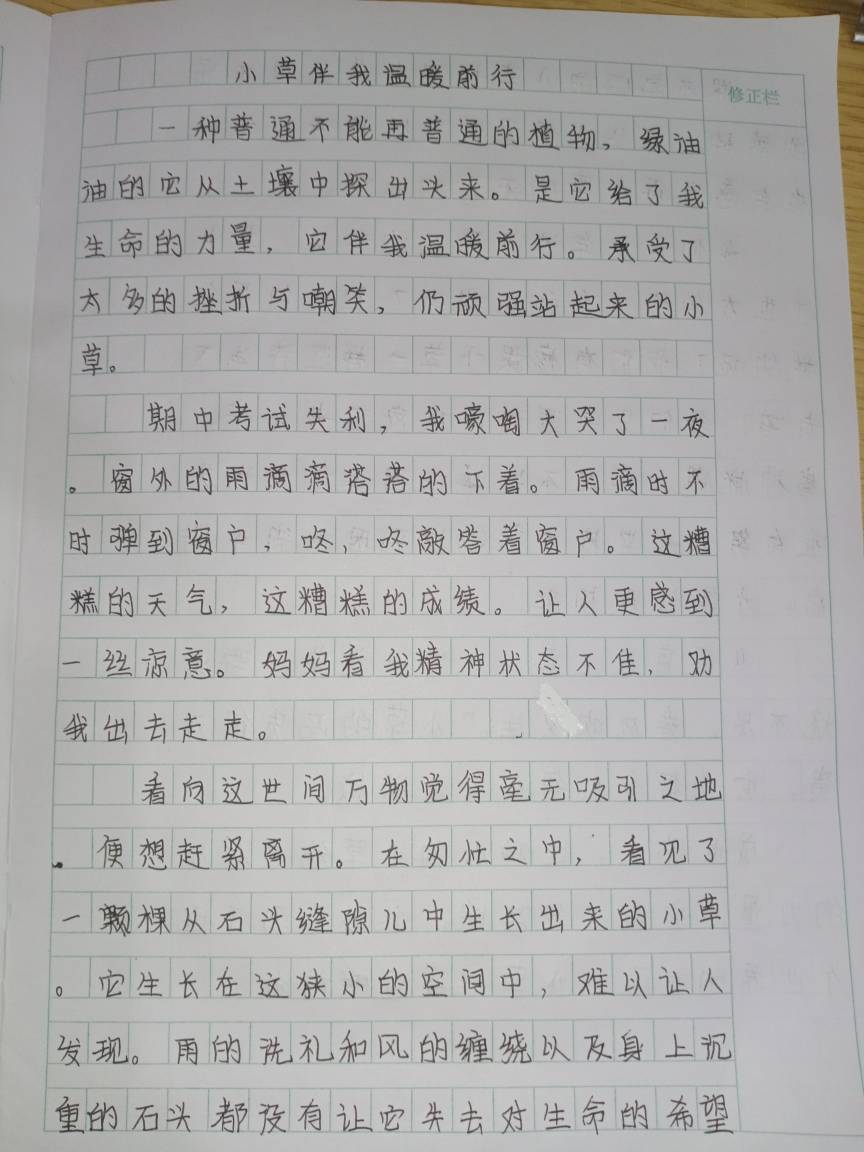 小草伴我温暖前行
修正栏
一种普通不能再普通的植物，绿油
油的它从土壤中探出头来。是它给了我
生命的力量，它伴我温暖前行。承受了
太多的挫折与嘲笑，仍顽强站起来的小
草。
期中考试失利，我嚎啕大哭了一夜
。窗外的雨滴滴搭搭的下着。雨滴时不
时弹到窗户，咚，咚敲答着窗户。这糟
糕的天气，这糟糕的成绩。让人更感到
一丝凉意。妈妈看我精神状态不佳，劝
我出去走走。
看向这世间万物觉得毫无吸引之地
。便想赶紧离开。在匆忙之中，看见了
一颗棵从石头缝隙儿中生长出来的小草
。它生长在这狭小的空间中，难以让人
发现。雨的洗礼和风的缠绕以及身上沉
重的石头都没有让它失去对生命的希望